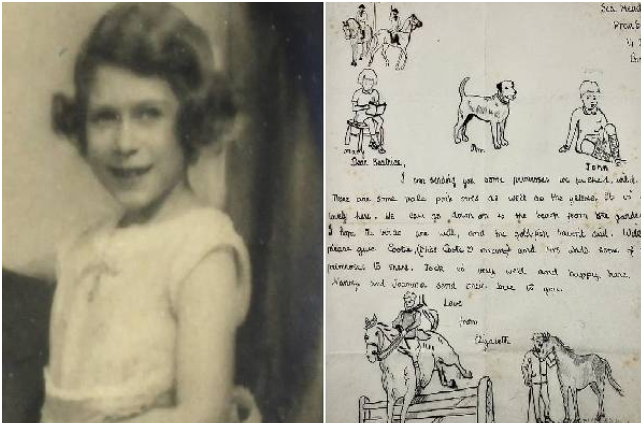 Sea Mead
Mary
Ann
John
Dear Beatrice,
I am sending you some primroses we picked, wild.
There are some pale pink ones as well as the yellow. It is
lovely here. We can go down on to the beach from the garden
I hope the birds are well, and the goldfish havent died.
please give and some of
primroses to them. is very well and happy here.
Nanny and send their love to you.
Love
from
Elizabeth